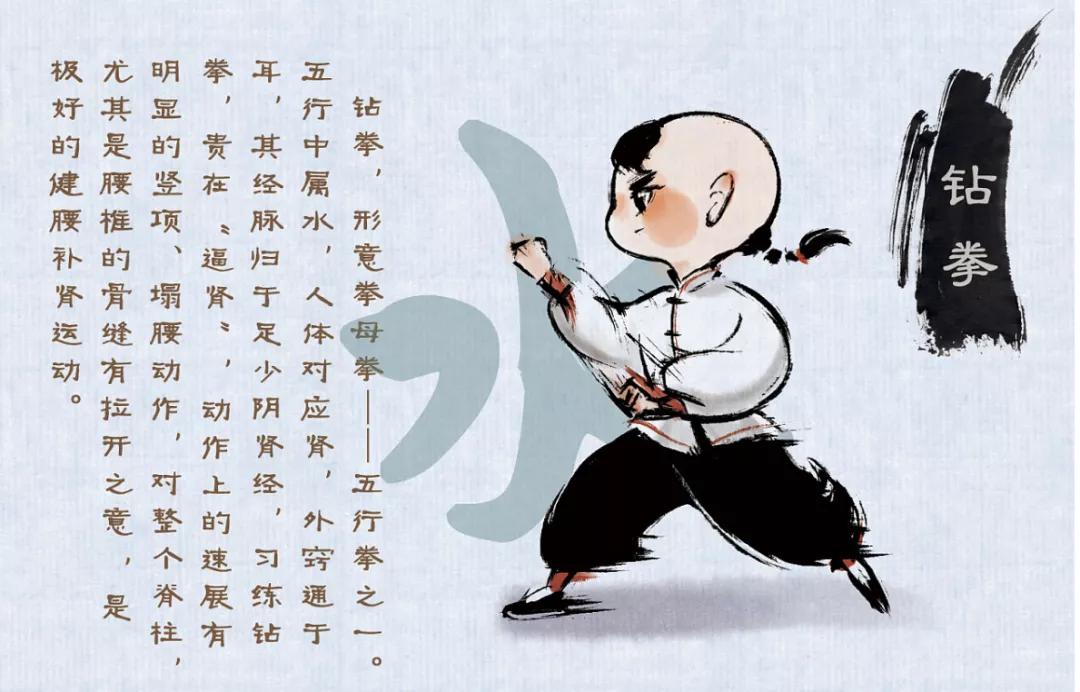 钻拳
水
钻拳，形意拳母拳——五行拳之一。
五行中属水，人体对应肾，外窍通于
耳，其经脉归于足少阴肾经，习练钻
拳，贵在“逼肾”，动作上的速展有
明显的竖项、塌腰动作，对整个脊柱，
尤其是腰椎的骨缝有拉开之意，是
极好的健腰补肾运动。